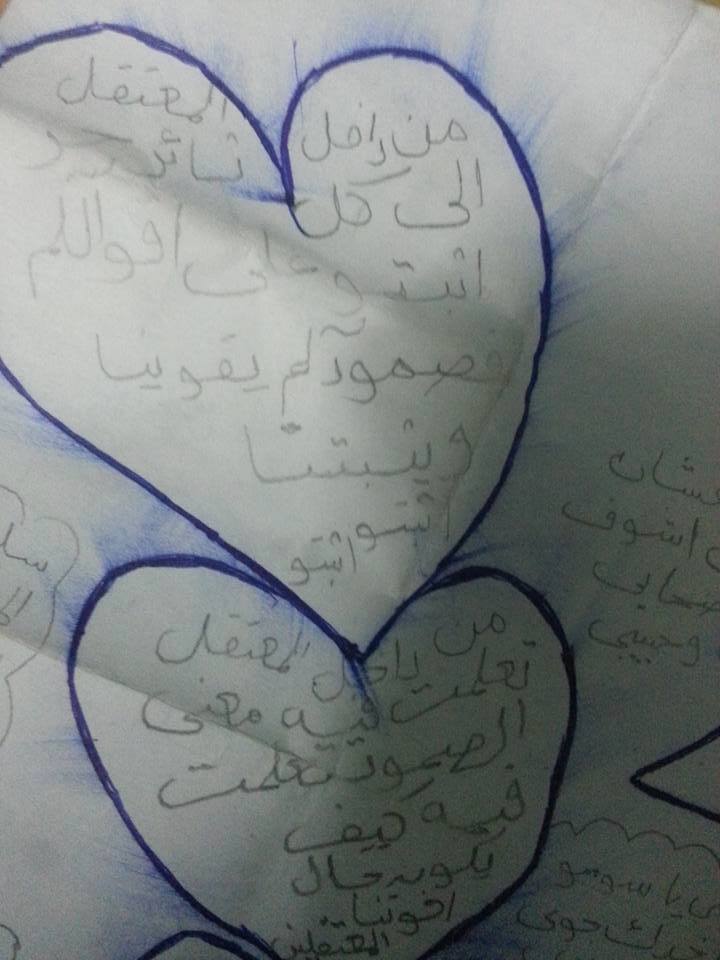 من داخل المعتقل
الى كل ثائر
اثبتو على اقوالكم
فصمودكم يقوينا
ويثبتنا
اثبتو
اثبتو
من داخل المعتقل
تعلمت فيه معنى
الصمود تعلمت
فيه كيف
يكون حال
اخوتنا
المعتقلين
اشوف
صحابي
وحبيبي